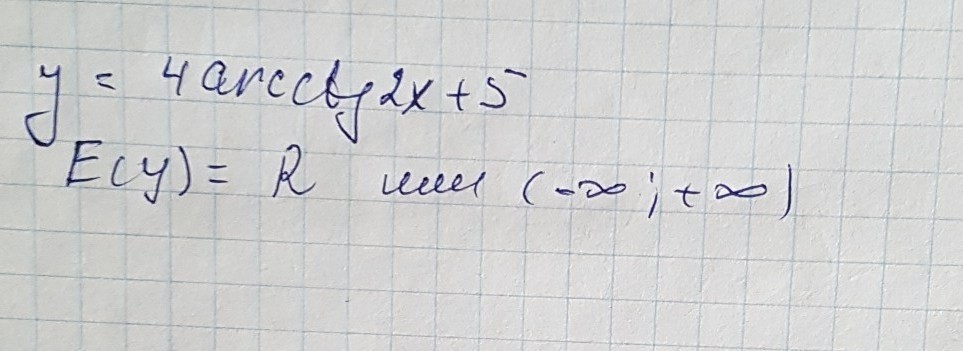 y = 4 arcctg 2x + 5
E(y) = R или (-∞; +∞)